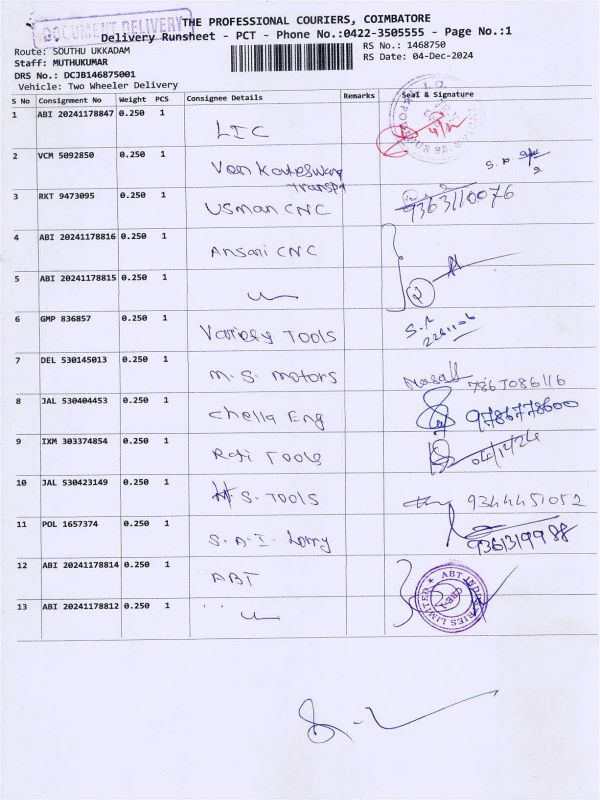 DOCUMENT DELIVERY
THE PROFESSIONAL COURIERS, COIMBATORE
Delivery Runsheet - PCT - Phone No.:0422-3505555 - Page No.:1
Route: SOUTHU UKKADAM RS No.: 1468750
Staff: MUTHUKUMAR RS Date: 04-Dec-2024
DRS No.: DCJB146875001
Vehicle: Two Wheeler Delivery
S No Consignment No Weight PCS Consignee Details Remarks Seal & Signature
1 ABI 20241178847 0.250 1 LIC
2 VCM 5092850 0.250 1 Venkateswara
Transpt
3 RKT 9473095 0.250 1 Usman CNC 9363110076
4 ABI 20241178816 0.250 1 Ansari CNC
5 ABI 20241178815 0.250 1
6 GMP 836857 0.250 1 Variety Tools
7 DEL 530145013 0.250 1 M.S. motors 7867086116
8 JAL 530404453 0.250 1 Chella Eng 9786778600
9 IXM 303374854 0.250 1 Tools
10 JAL 530423149 0.250 1 S. TOOLS 9344451052
11 POL 1657374 0.250 1 S.A.I. Lorry 9361319988
12 ABI 20241178814 0.250 1 ABT
ABT INDUSTRIES LIMITED
13 ABI 20241178812 0.250 1